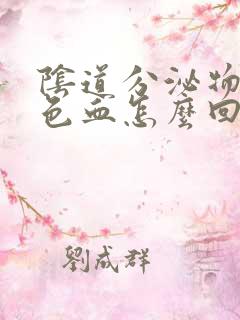 陰道分泌物
色血怎麼回
劉成群